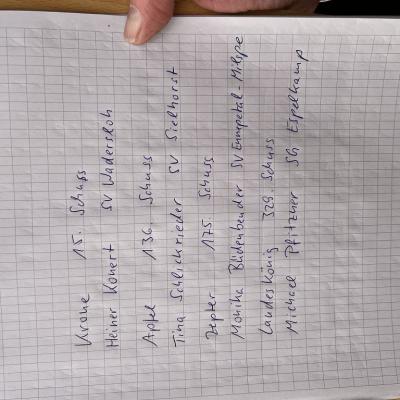 Krone 15. Schuss
Heiner Konert SV Wadersloh
Apfel 136. Schuss
Tina Schlichrieder SV Sielhorst
Zepter 175. Schuss
Monika Büdenbender SV Ennepetal-Milspe
Landeskönig 329. Schuss
Michael Pfitzner SG Espelkamp